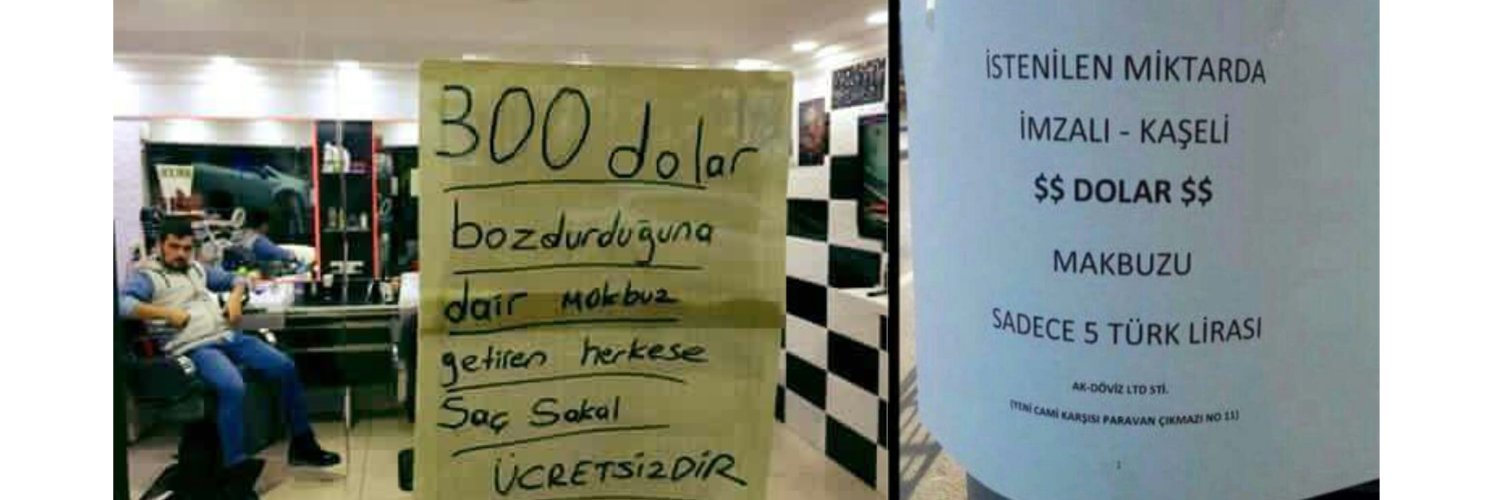 300 dolar
bozdurduğuna
dair makbuz
getiren herkese
Saç Sakal
ÜCRETSİZDİR
İSTENİLEN MİKTARDA
İMZALI - KAŞELİ
$$ DOLAR $$
MAKBUZU
SADECE 5 TÜRK LİRASI
AK-DÖVİZ LTD STİ.
(YENİ CAMİ KARŞISI PARAVAN ÇIKMAZI NO 11)